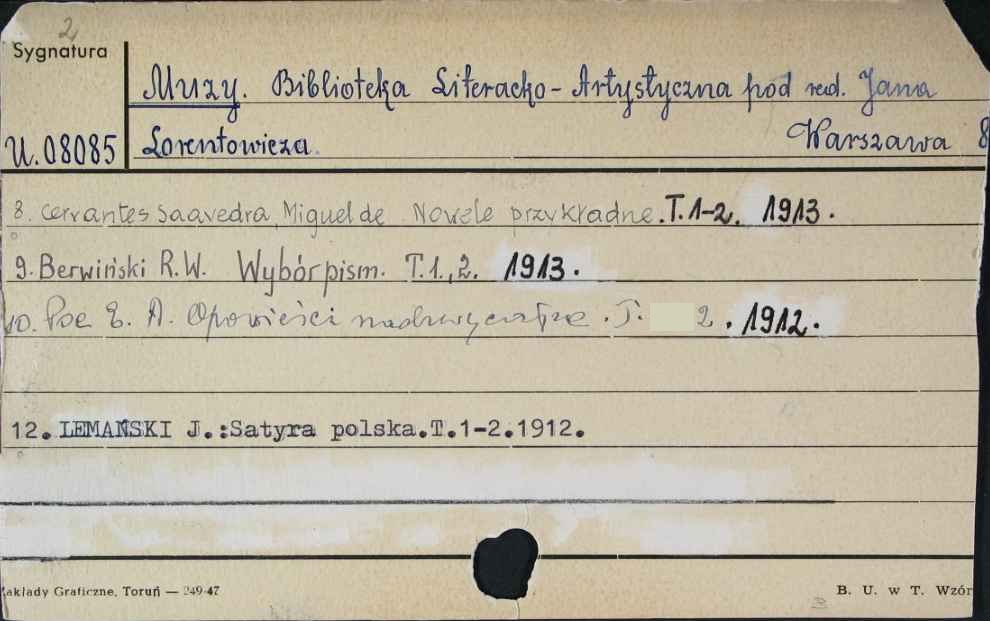 2
Sygnatura
Muzy. Biblioteka Literacko-Artystyczna pod red. Jana
U.08085 Lorentowicza. Warszawa 8
8. Cervantes Saavedra, Miguel de Nowele przykładne. T.1-2. 1913.
9. Berwiński R.W. Wybór pism. T.1.,2. 1913.
10. Poe E. A. Opowieści nadzwyczajne. T. 2. 1912.
12. LEMAŃSKI J.:Satyra polska.T.1-2.1912.
akłady Graficzne, Toruń — 249-47 B. U. w T. Wzór